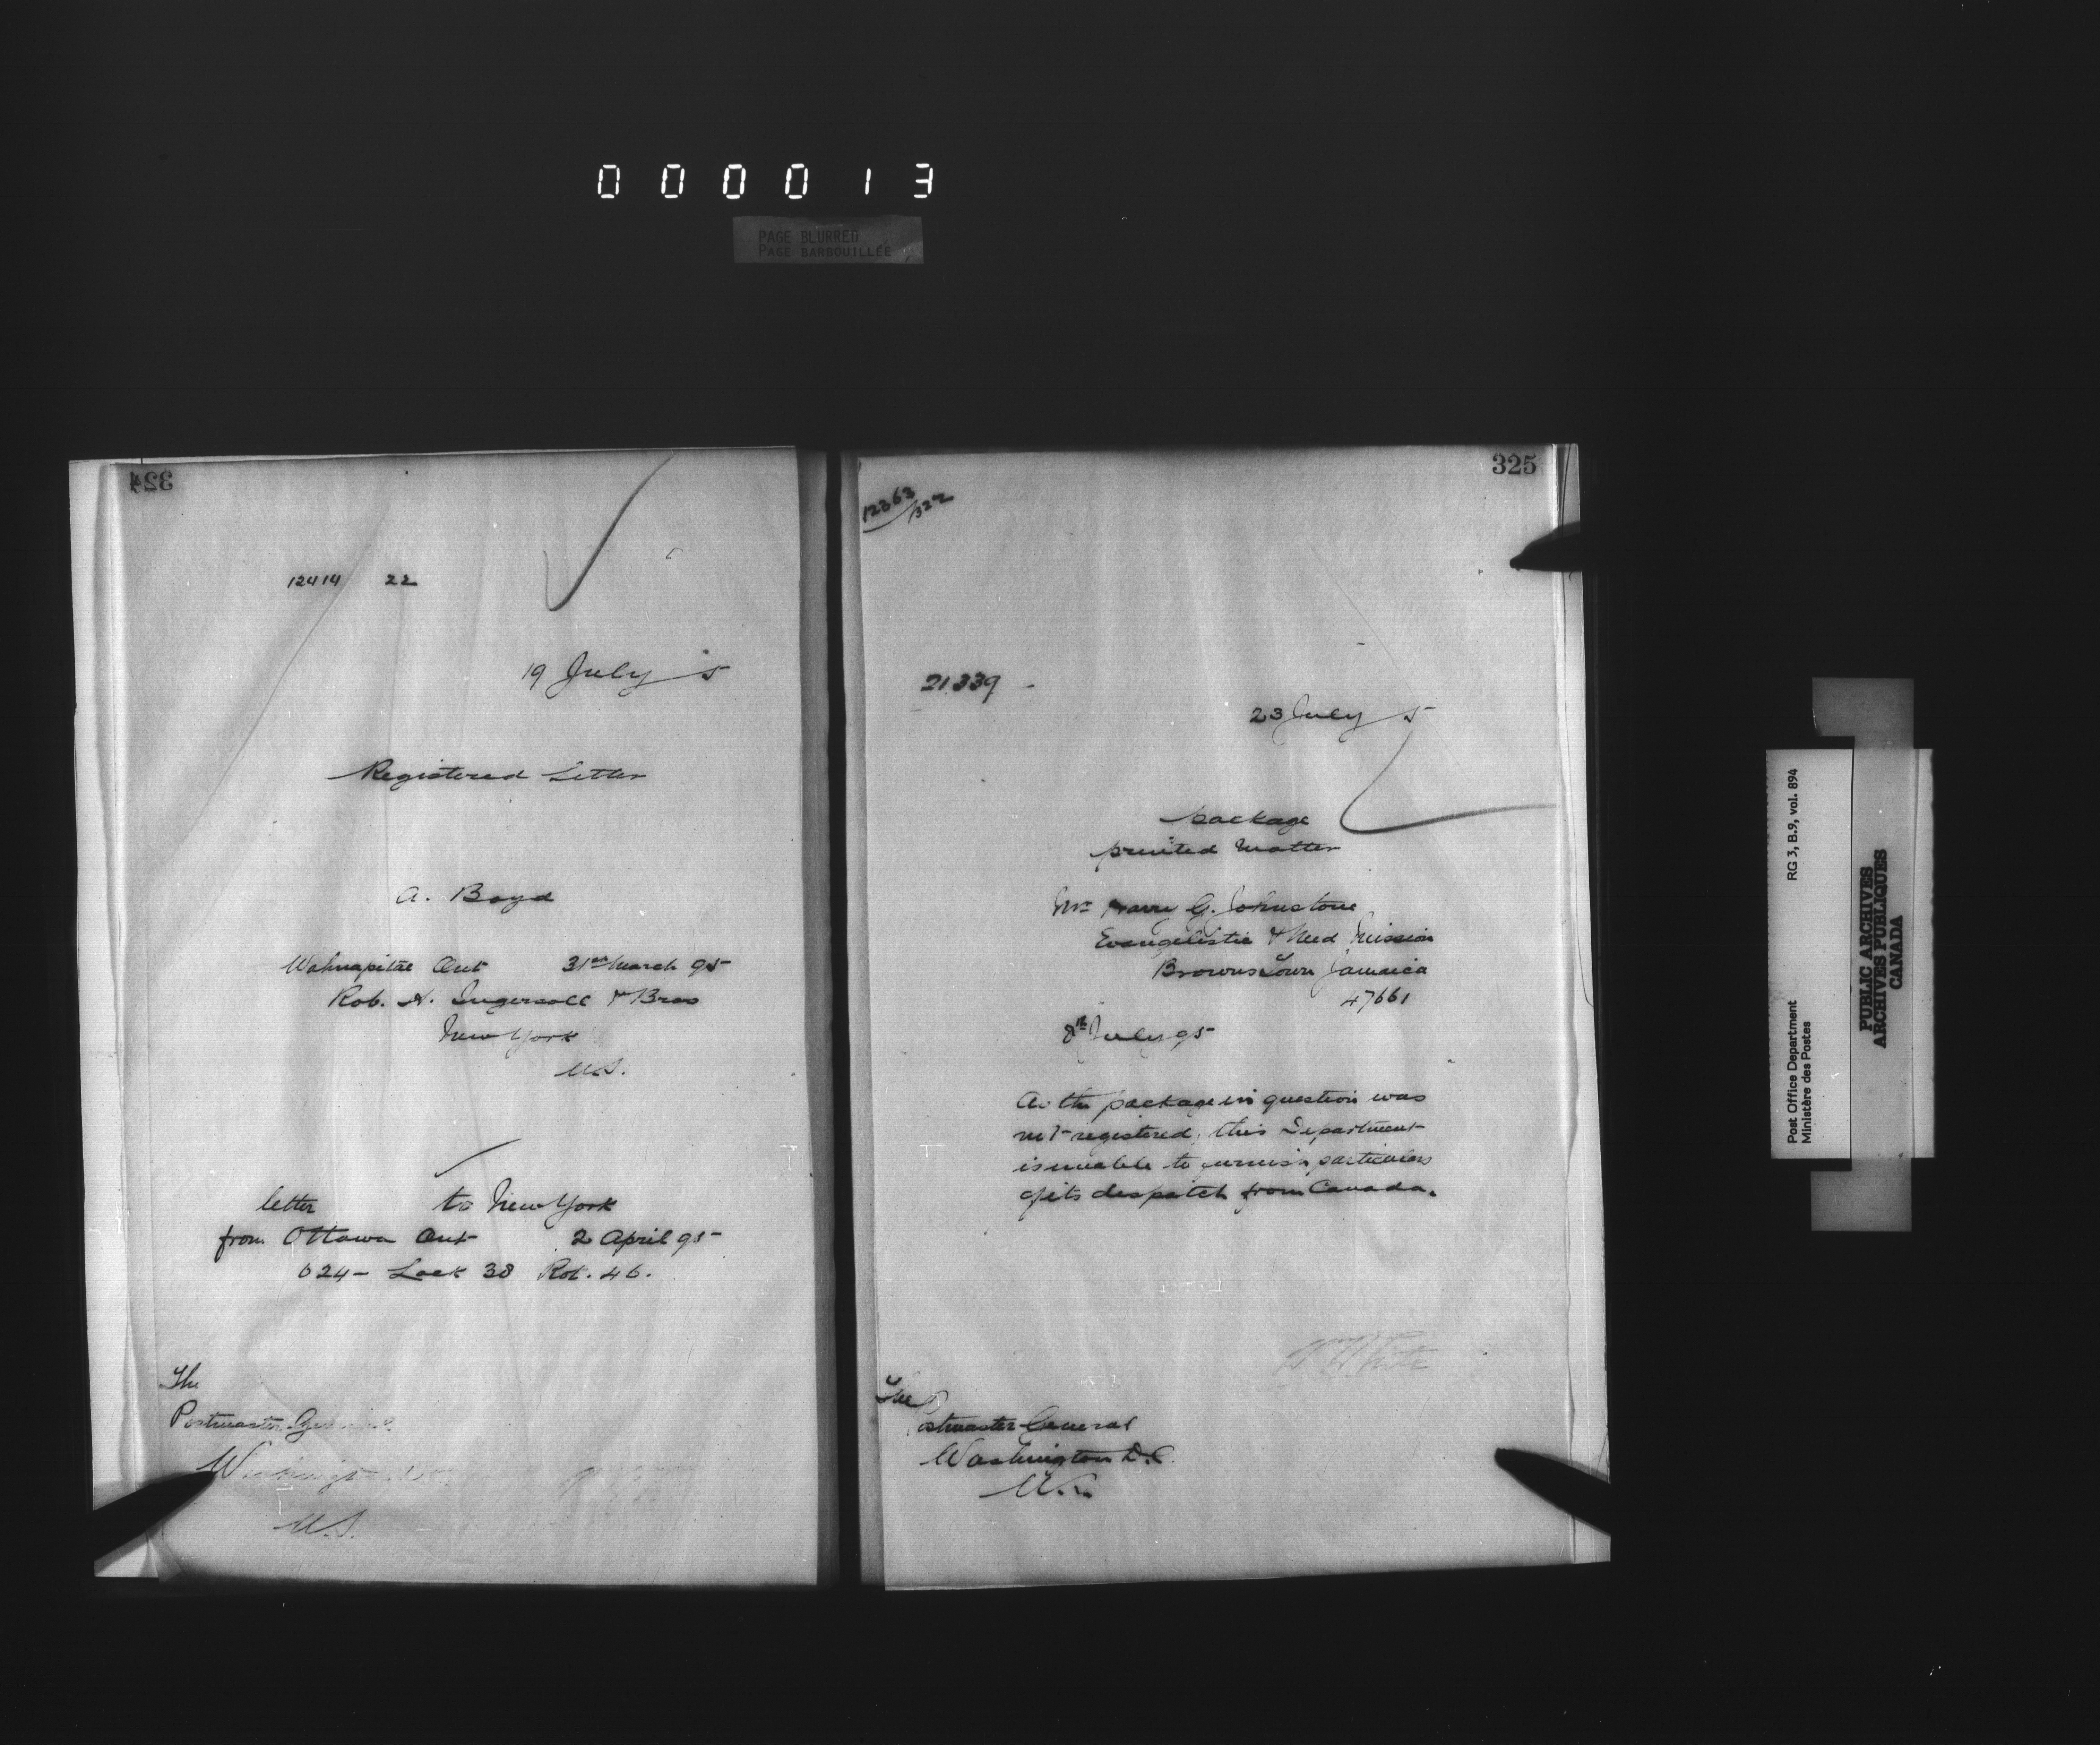 000013
PAGE BLURRED
PAGE BARBOUILLÉE
324
12414 22
19 July 5
Registered Letter
A. Boyd
Wahnapitae Ont 31st March 95
Rob. H. Ingersoll & Bros
New York
U.S.
letter to New York
from Ottawa Ont 2 April 95
624 - Lock 38 Rot. 46.
The
Postmaster General
Washington
U.S.
325
12363/322
21.339 -
23 July 5
package
printed matter
Mr G. Johnstone
Evangelistic & Med Mission
Browns Town Jamaica
47661
8th July 95
As the package in question was
not registered, this Department
is unable to furnish particulars
of its despatch from Canada.
White
The
Postmaster General
Washington D.C.
U.S.
Post Office Department RG 3, B.9, vol. 894
Ministère des Postes
PUBLIC ARCHIVES
ARCHIVES PUBLIQUES
CANADA